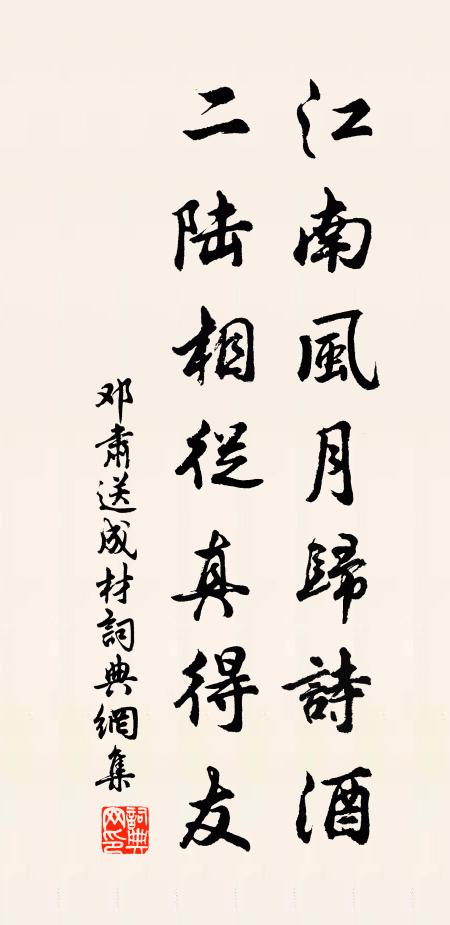 江南風月歸詩酒
二陆相從真得友
邓肅送成材詞典網集
詞典網印